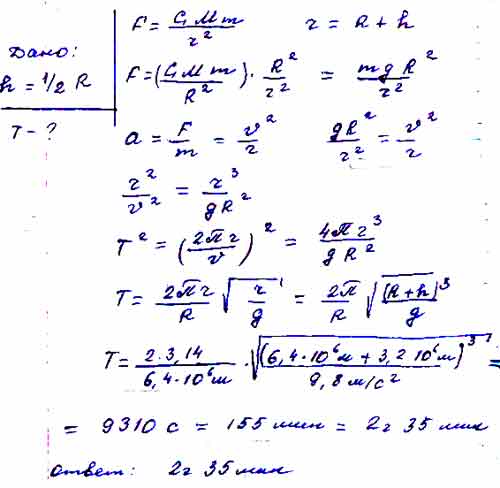 Дано:
h = 1/2 R
T - ?
F = GMm/r² r = R + h
F = (GMm/R²) · R²/r² = mgR²/r²
a = F/m = v²/r gR²/r² = v²/r
r²/v² = r³/gR²
T² = (2πr/v)² = 4πr³/gR²
T = 2πr/R √(r/g) = 2π/R √((R+h)³/g)
T = 2·3,14/6,4·10⁶м · √((6,4·10⁶м + 3,2 10⁶м)³/9,8 м/с²) =
= 9310 с = 155 мин = 2г 35 мин
ответ: 2г 35 мин